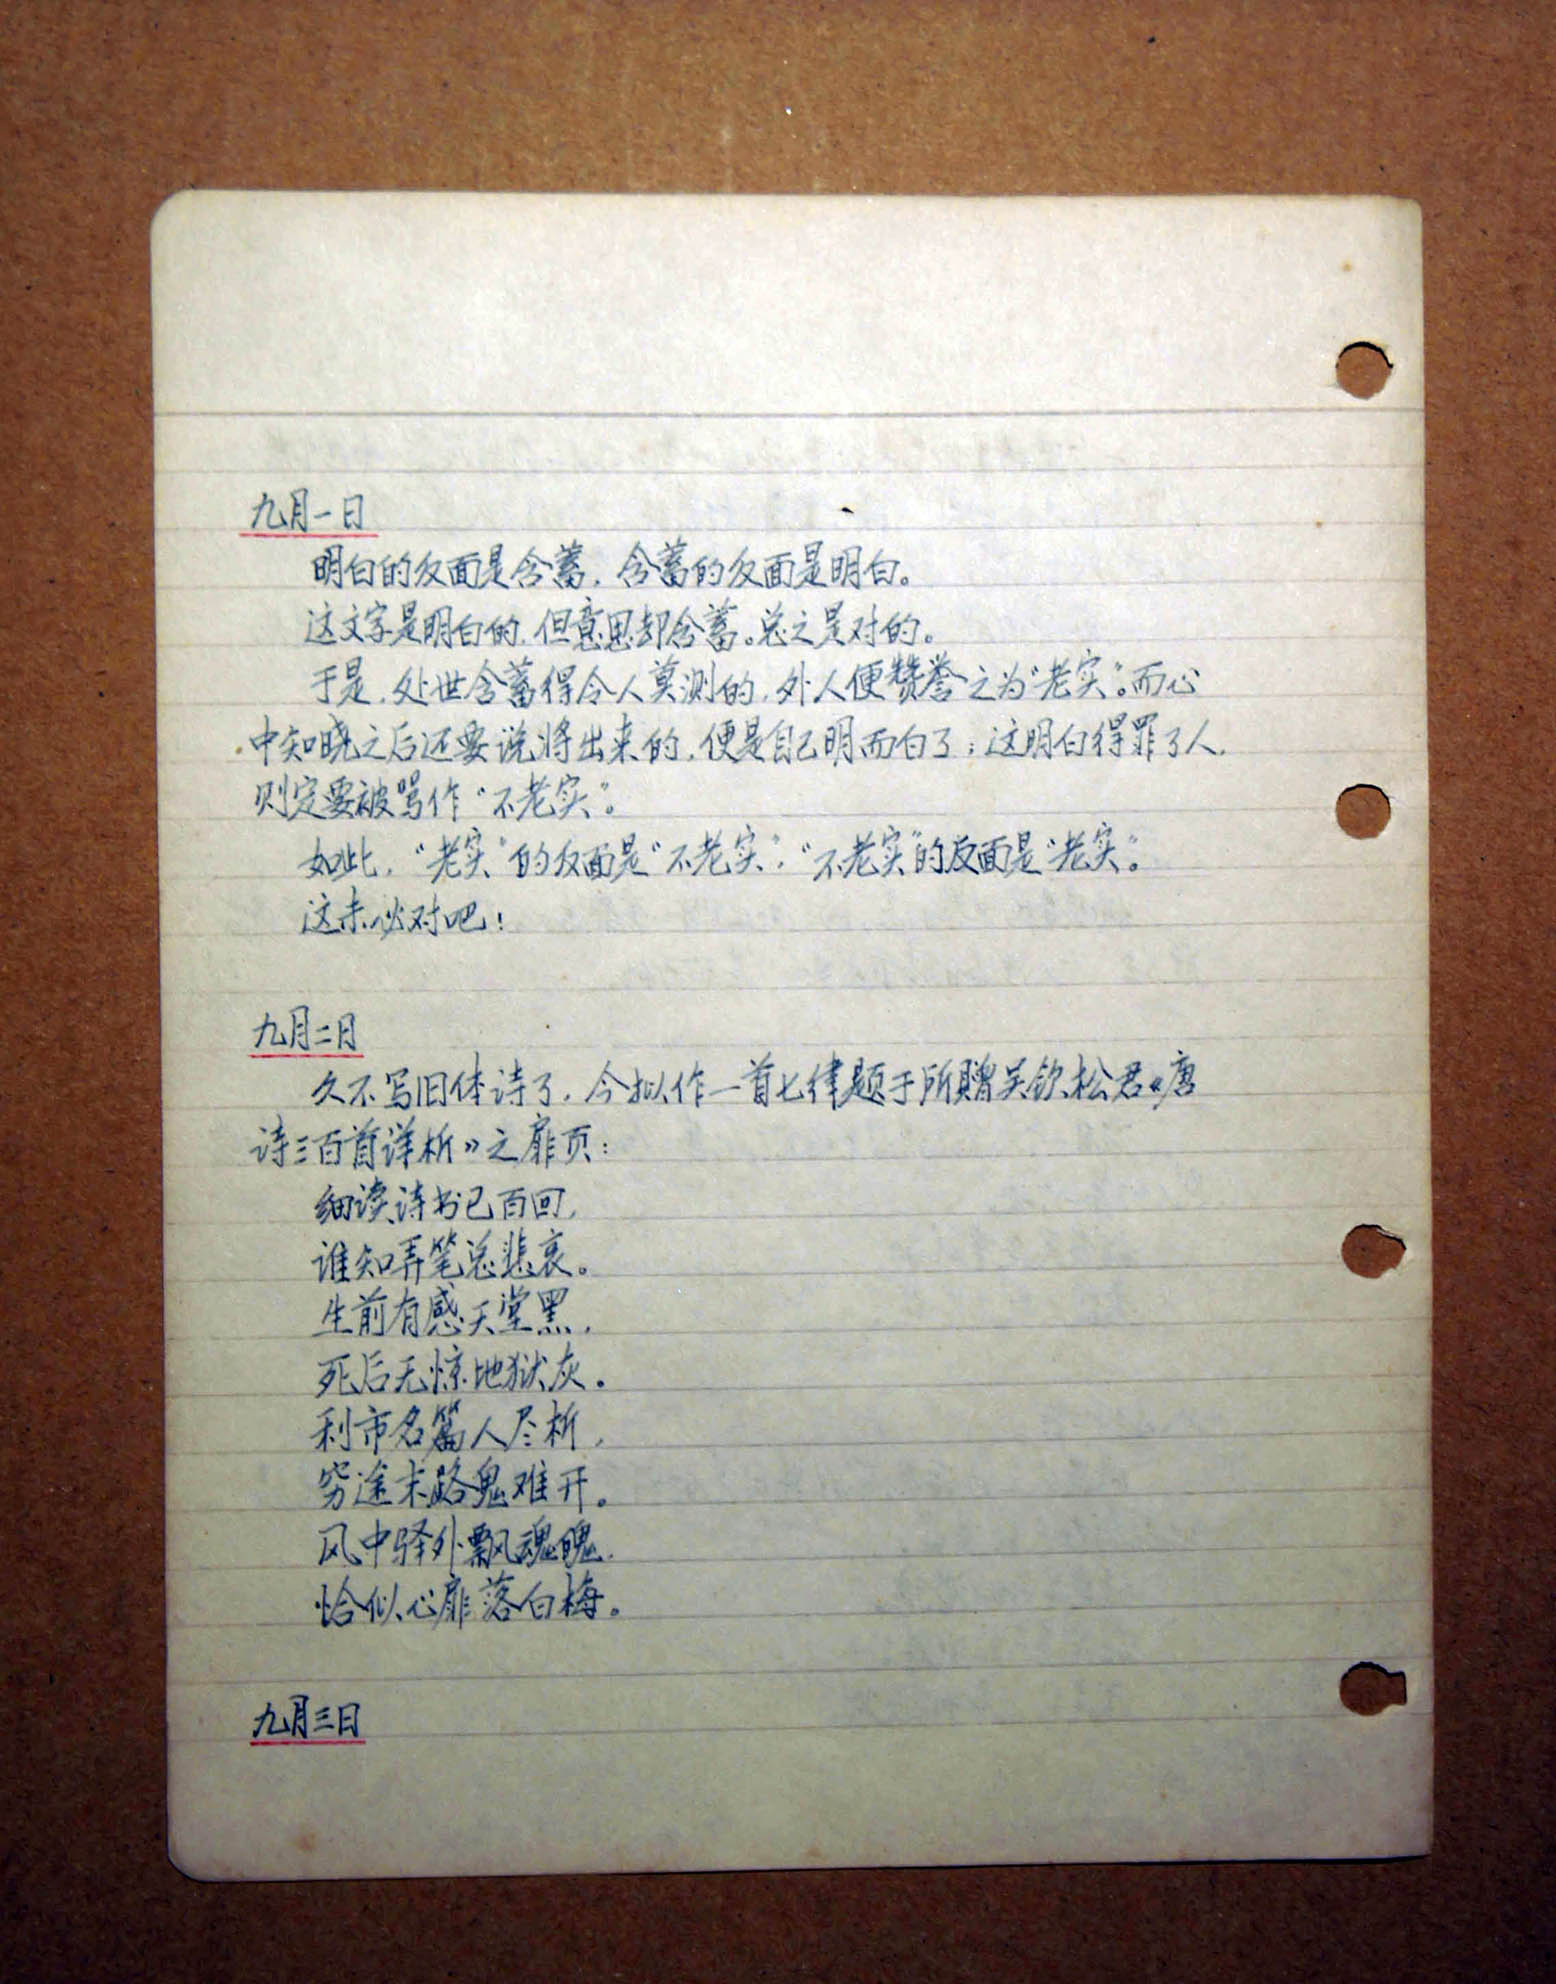 九月一日
明白的反面是含蓄，含蓄的反面是明白。
这文字是明白的，但意思却含蓄。总之是对的。
于是，处世含蓄得令人莫测的，外人便赞誉之为“老实”。而心
中知晓之后还要说将出来的，便是自己明而白了；这明白得罪了人，
则定要被骂作“不老实”。
如此，“老实”的反面是“不老实”，“不老实”的反面是“老实”。
这未必对吧！
九月二日
久不写旧体诗了，今拟作一首七律题于所赠吴钦松君《唐
诗三百首详析》之扉页：
细读诗书已百回，
谁知弄笔总悲哀。
生前有感天堂黑，
死后无惊地狱灰。
利市名篇人尽析，
穷途末路鬼难开。
风中驿外飘魂魄，
恰似心扉落白梅。
九月三日